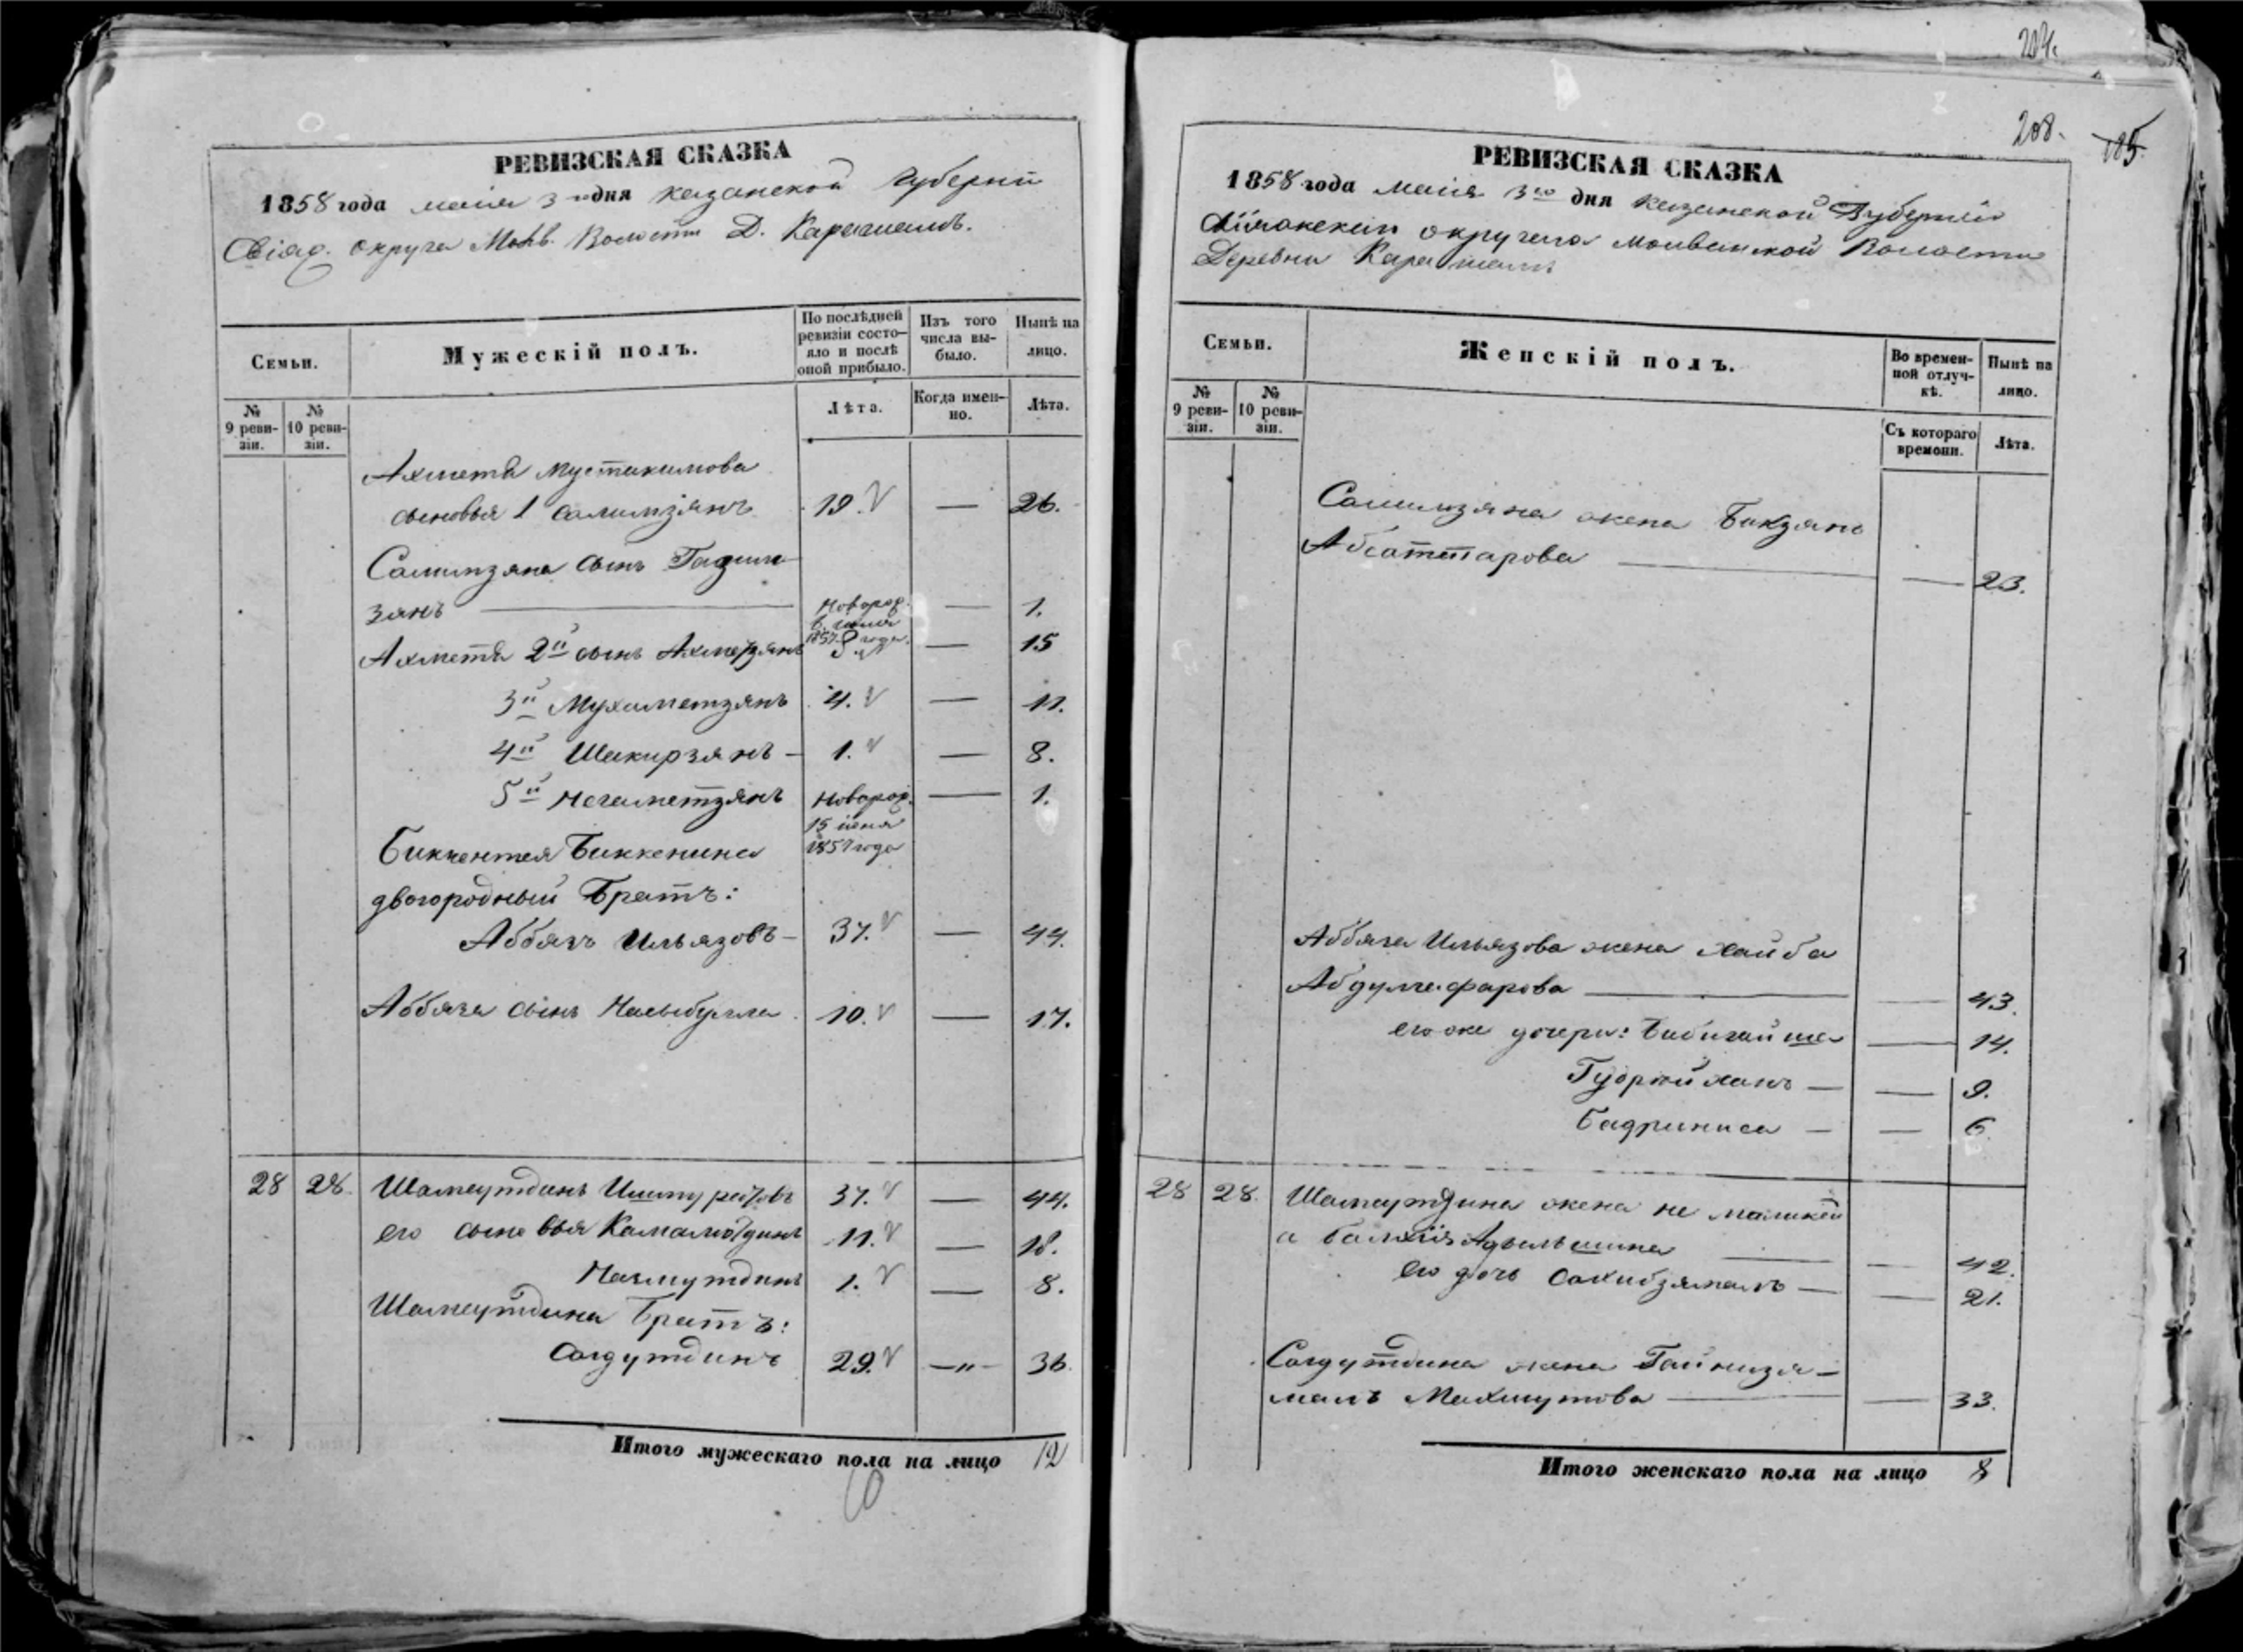 204.
208.
185.
РЕВИЗСКАЯ СКАЗКА
1858 года мая 3го дня Казанской Губерніи
Свіяж. Округа Молв. Волости Д. Карашамъ.
Семьи.
Мужескій полъ.
По послѣдней ревизіи состояло и послѣ оной прибыло.
Изъ того числа выбыло.
Нынѣ на лицо.
№ 9 ревизіи.
№ 10 ревизіи.
Лѣта.
Когда именно.
Лѣта.
Ахметя Мустакимова
сыновья 1 Салимзянъ 19. — 26.
Салимзяна сынъ Газим-
зянъ — Новорож. — 1.
1857 года.
Ахметя 2й сынъ Ахметзянъ 8. — 15
3й Мухаметзянъ 4. — 11.
4й Шакирзянъ — 1. — 8.
5й Негаметзянъ Новорож. — 1.
15 іюня
1857 года
Биккентея Биккенина
двоюродный Братъ:
Аббязъ Ильязовъ — 37. — 44.
Аббяза сынъ Насыбулла 10. — 17.
28 28. Шамсутдинъ Ишмуратовъ 37. — 44.
его сыновья Камалютдинъ 11. — 18.
Нагмутдинъ 1. — 8.
Шамсутдина Братъ:
Садутдинъ 29. —„— 36.
Итого мужескаго пола на лицо 12
10
РЕВИЗСКАЯ СКАЗКА
1858 года мая 3го дня Казанской Губерніи
округа Молвинской Волости
Деревни Карашамъ
Семьи.
Женскій полъ.
Во временной отлучкѣ.
Нынѣ на лицо.
№ 9 ревизіи.
№ 10 ревизіи.
Съ котораго времени.
Лѣта.
Салимзяна жена Бикзянъ
Абсаттарова — — 23.
Аббяза Ильязова жена Хайба
Абдулгафарова — — 43.
его же дочери: Бибигайша — 14.
— — 9.
Бадриниса — — 6.
28 28. Шамсутдина жена не
а Адельшина — — 42.
его дочь Сахибзямалъ — — 21.
Садутдина жена Гайнизя-
малъ Махмутова — — 33.
Итого женскаго пола на лицо 8